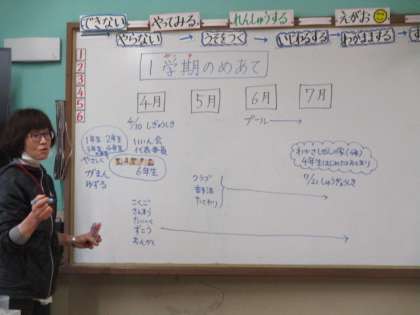 できない
やってみる
れんしゅうする
えがお
やらない
うそをつく
いじわるする
わがままする
1
2
3
4
5
6
1学期のめあて
4月
5月
6月
7月
4/10 しぎょうしき
プール→
1年生 2年生
やさしく
がまん
ゆずる
いいん会
代表委員
6年生
クラブ
4年生
7/21 しゅうぎょうしき
こくご
さんすう
たいいく
ずこう
おんがく